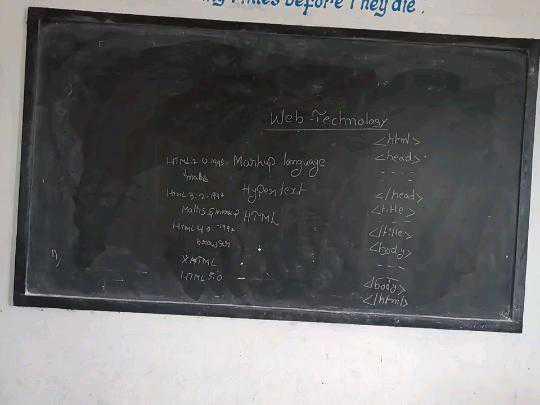 before They die.
Web-Technology
HTML 2.0 Markup language
HTML 3.2 Hypertext
HTML
HTML 4.0
browser
XHTML
HTML 5.0
<html>
<head>
- - - -
</head>
<title>
</title>
<body>
- - -
</body>
</html>